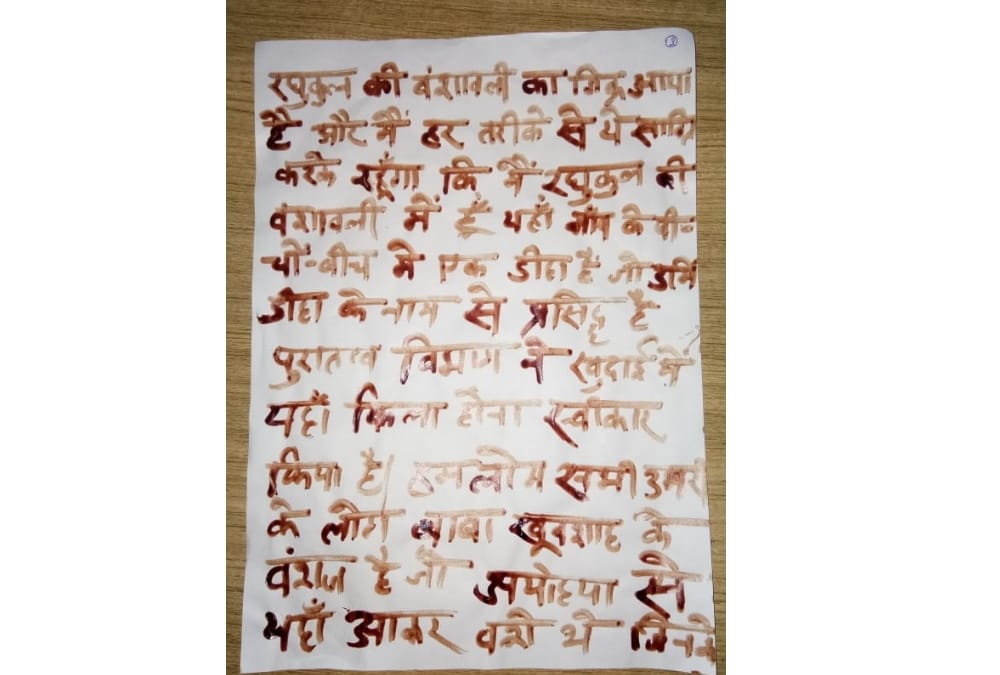 3
रघुकुल की वंशावली का जिक्र आया
है और मैं हर तरीके से ये साबि
करके रहूँगा कि मैं रघुकुल की
वंशावली में हूँ यहाँ गांव के बी-
चों-बीच मे एक डीहा है जो
डीहा के नाम से प्रसिद्ध है
पुरातत्व विभाग ने खुदाई में
यहाँ किला होना स्वीकार
किया है। हमलोग सभी
के लोग बाबा खूबशाह के
वंशज है जो अयोध्या से
यहाँ आकर वशे थे जिनके